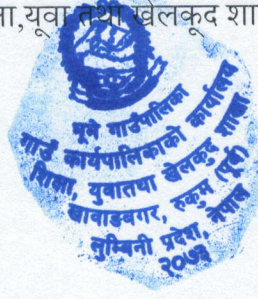 ा,यूवा तथा खेलकूद शा
भूमे गाउँपालिका
गाउँ कार्यपालिकाको कार्यालय
शिक्षा, युवातथा खेलकुद शाखा
खावाङबगर, रुकुम (पूर्व)
लुम्बिनी प्रदेश, नेपाल
२०७३